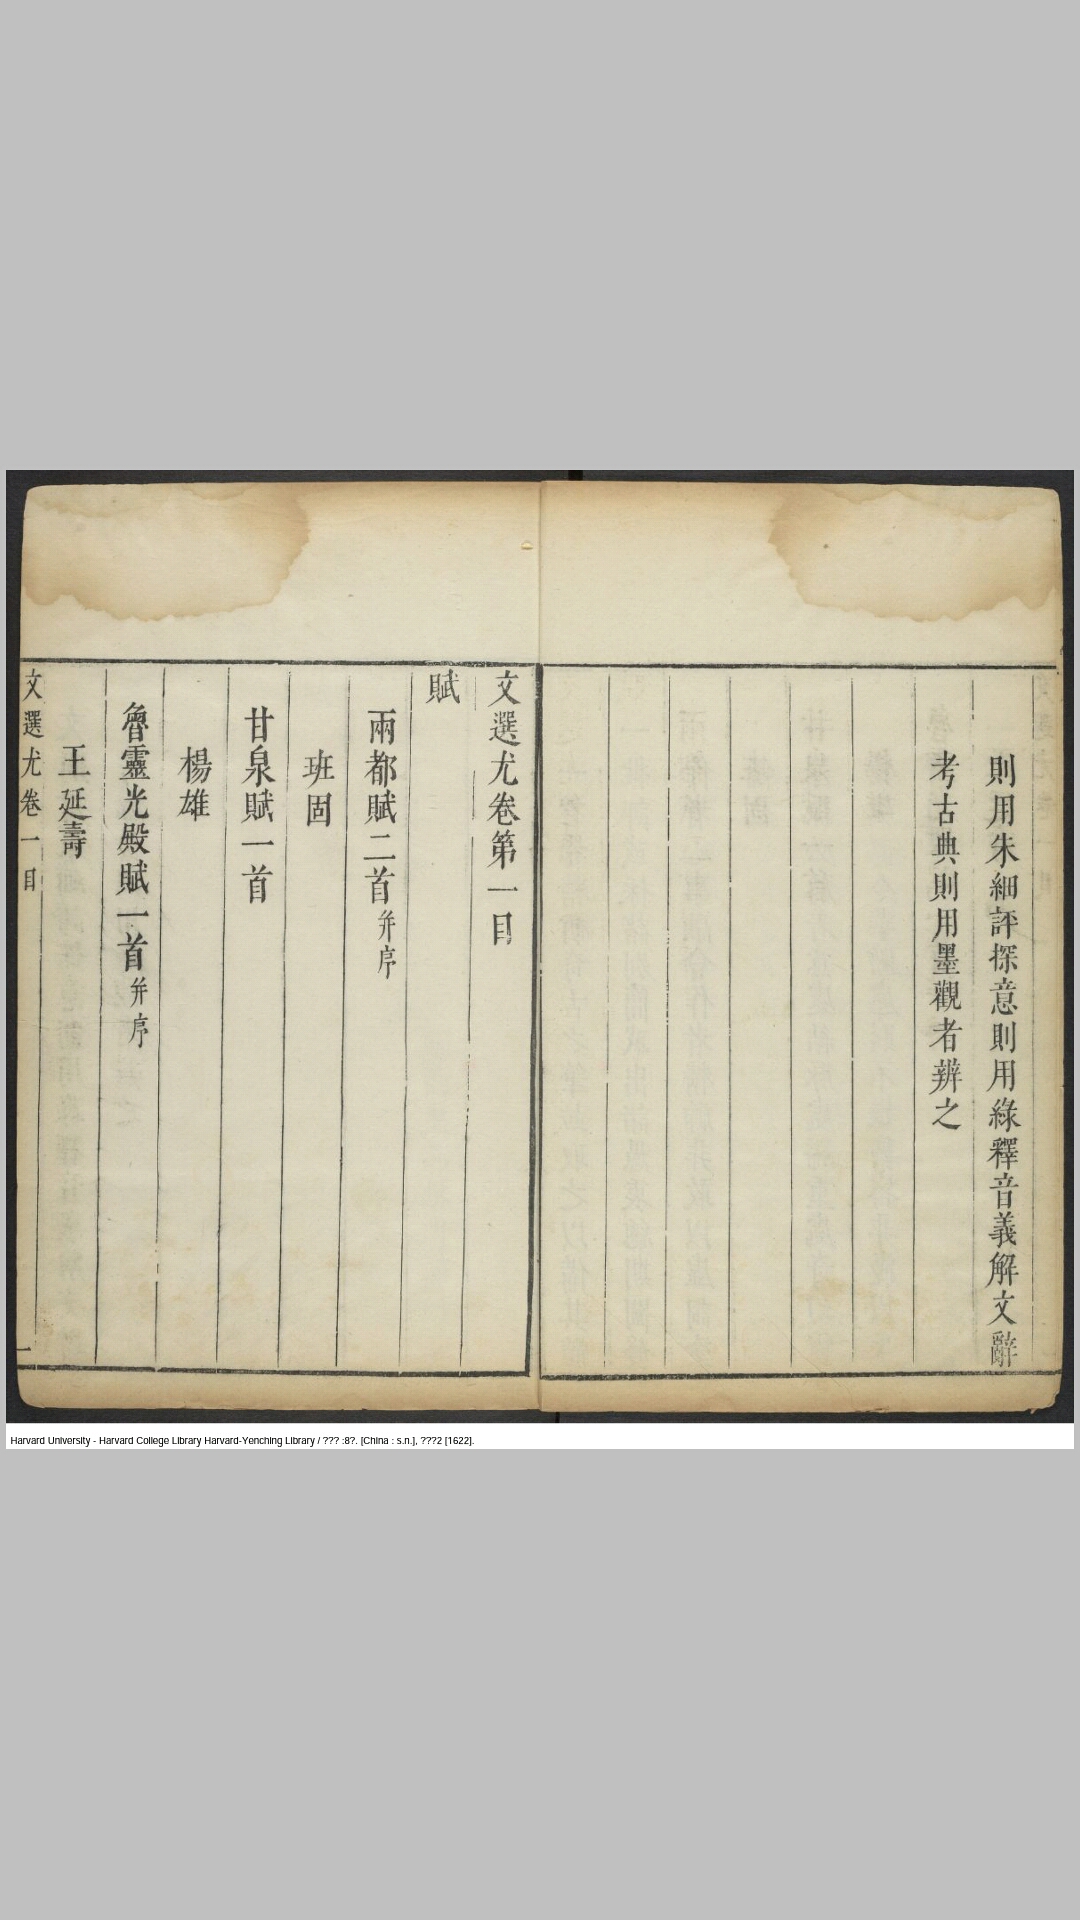 則用朱細評探意則用綠釋音義解文辭
考古典則用墨觀者辨之
文選尤卷第一目
賦
兩都賦二首并序
班固
甘泉賦一首
楊雄
魯靈光殿賦一首并序
王延壽
文選尤卷一目
一
Harvard University - Harvard College Library Harvard-Yenching Library / ??? :8?. [China : s.n.], ???2 [1622].